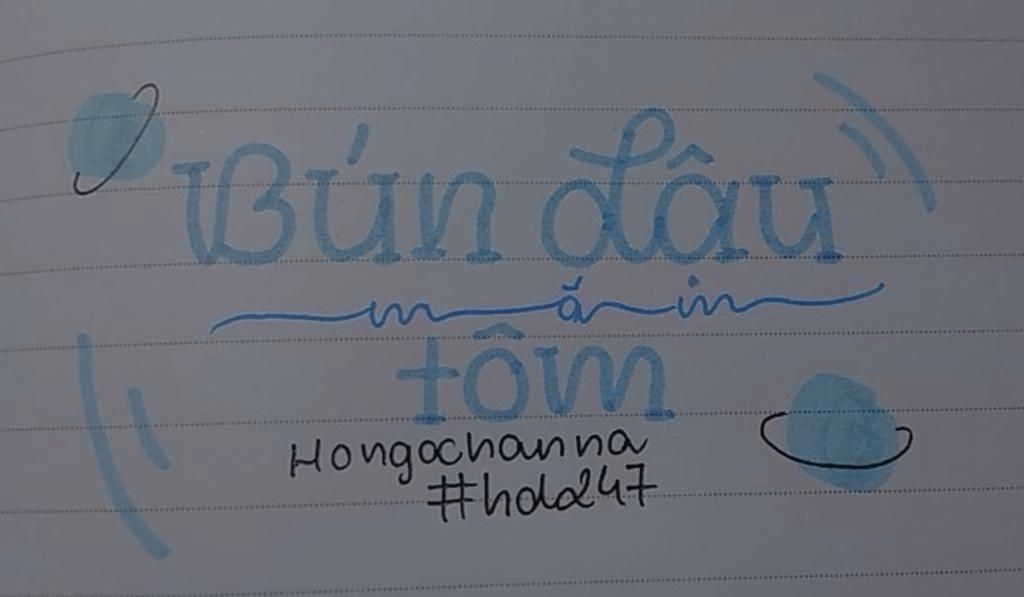 Bún dâu
mắm
tôm
Hongochanna
#hda247